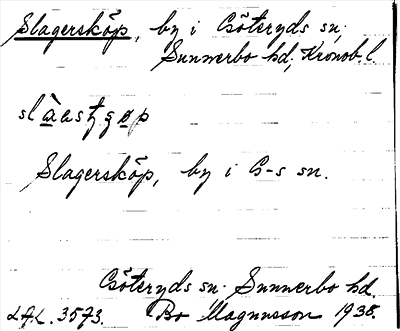 Slagersköp, by i Göteryds sn,
Sunnerbo hd, Kronob. l.
Slagersköp, by i G-s sn.
Göteryds sn. Sunnerbo hd.
L.A.L. 3573. Bo Magnusson 1938.